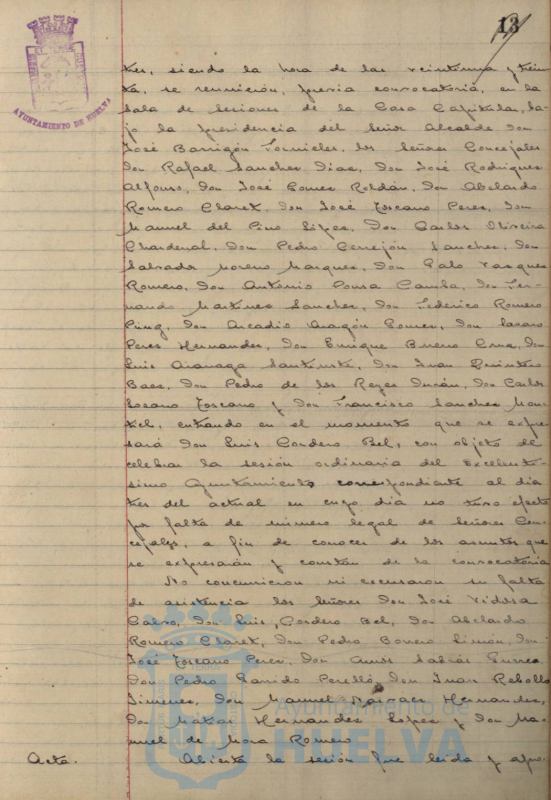 13
AYUNTAMIENTO DE HUELVA
tres, siendo la hora de las veintiuna y trein-
ta, se reunieron, previa convocatoria, en la
sala de sesiones de la Casa Capitular, ba-
jo la presidencia del Señor Alcalde don
José Barrigón Fornieles, los Señores Concejales
don Rafael Sanchez Diaz, don José Rodriguez
Alfonso, don José Gomez Roldán, don Abelardo
Romero Claret, don José Toscano Perez, don
Manuel del Pino López, don Carlos Oliveira
Chardenal, don Pedro Cerrejón Sanchez, don
Salvador Moreno Marquez, don Galo Vazquez
Romero, don Antonio Pousa Camba, don Fer-
nando Martinez Sanchez, don Federico Romero
don Arcadio Aragón Gomez, don Lazaro
Perez Hernandez, don Enrique Bueno Cruz, don
Luis don Juan Quintero
Baez, don Pedro de los Reyes Durán, don Carlos
Lozano Toscano y don Francisco Sanchez Mon-
tiel, entrando en el momento que se expre-
sará don Luis Cordero Bel, con objeto de
celebrar la sesión ordinaria del Excelentí-
simo Ayuntamiento correspondiente al dia
tres del actual en cuyo dia no tuvo efecto
por falta de número legal de señores Con-
cejales, a fin de conocer de los asuntos que
se expresarán y constan de la convocatoria
No concurrieron ni excusaron su falta
de asistencia los Señores don José
Calvo, don Luis Cordero Bel, don Abelardo
Romero Claret, don Pedro Borrero Limón, don
José Toscano Perez, don Amós Sabrás Gurrea
don Pedro Garrido Perelló, don Juan Rebollo
Jimenez, don Manuel Hernandez,
don Matias Hernandez Lopez y don Ma-
nuel de Mora Romero
Acta. Abierta la sesión fue leida y apro-
Ayuntamiento de
HUELVA